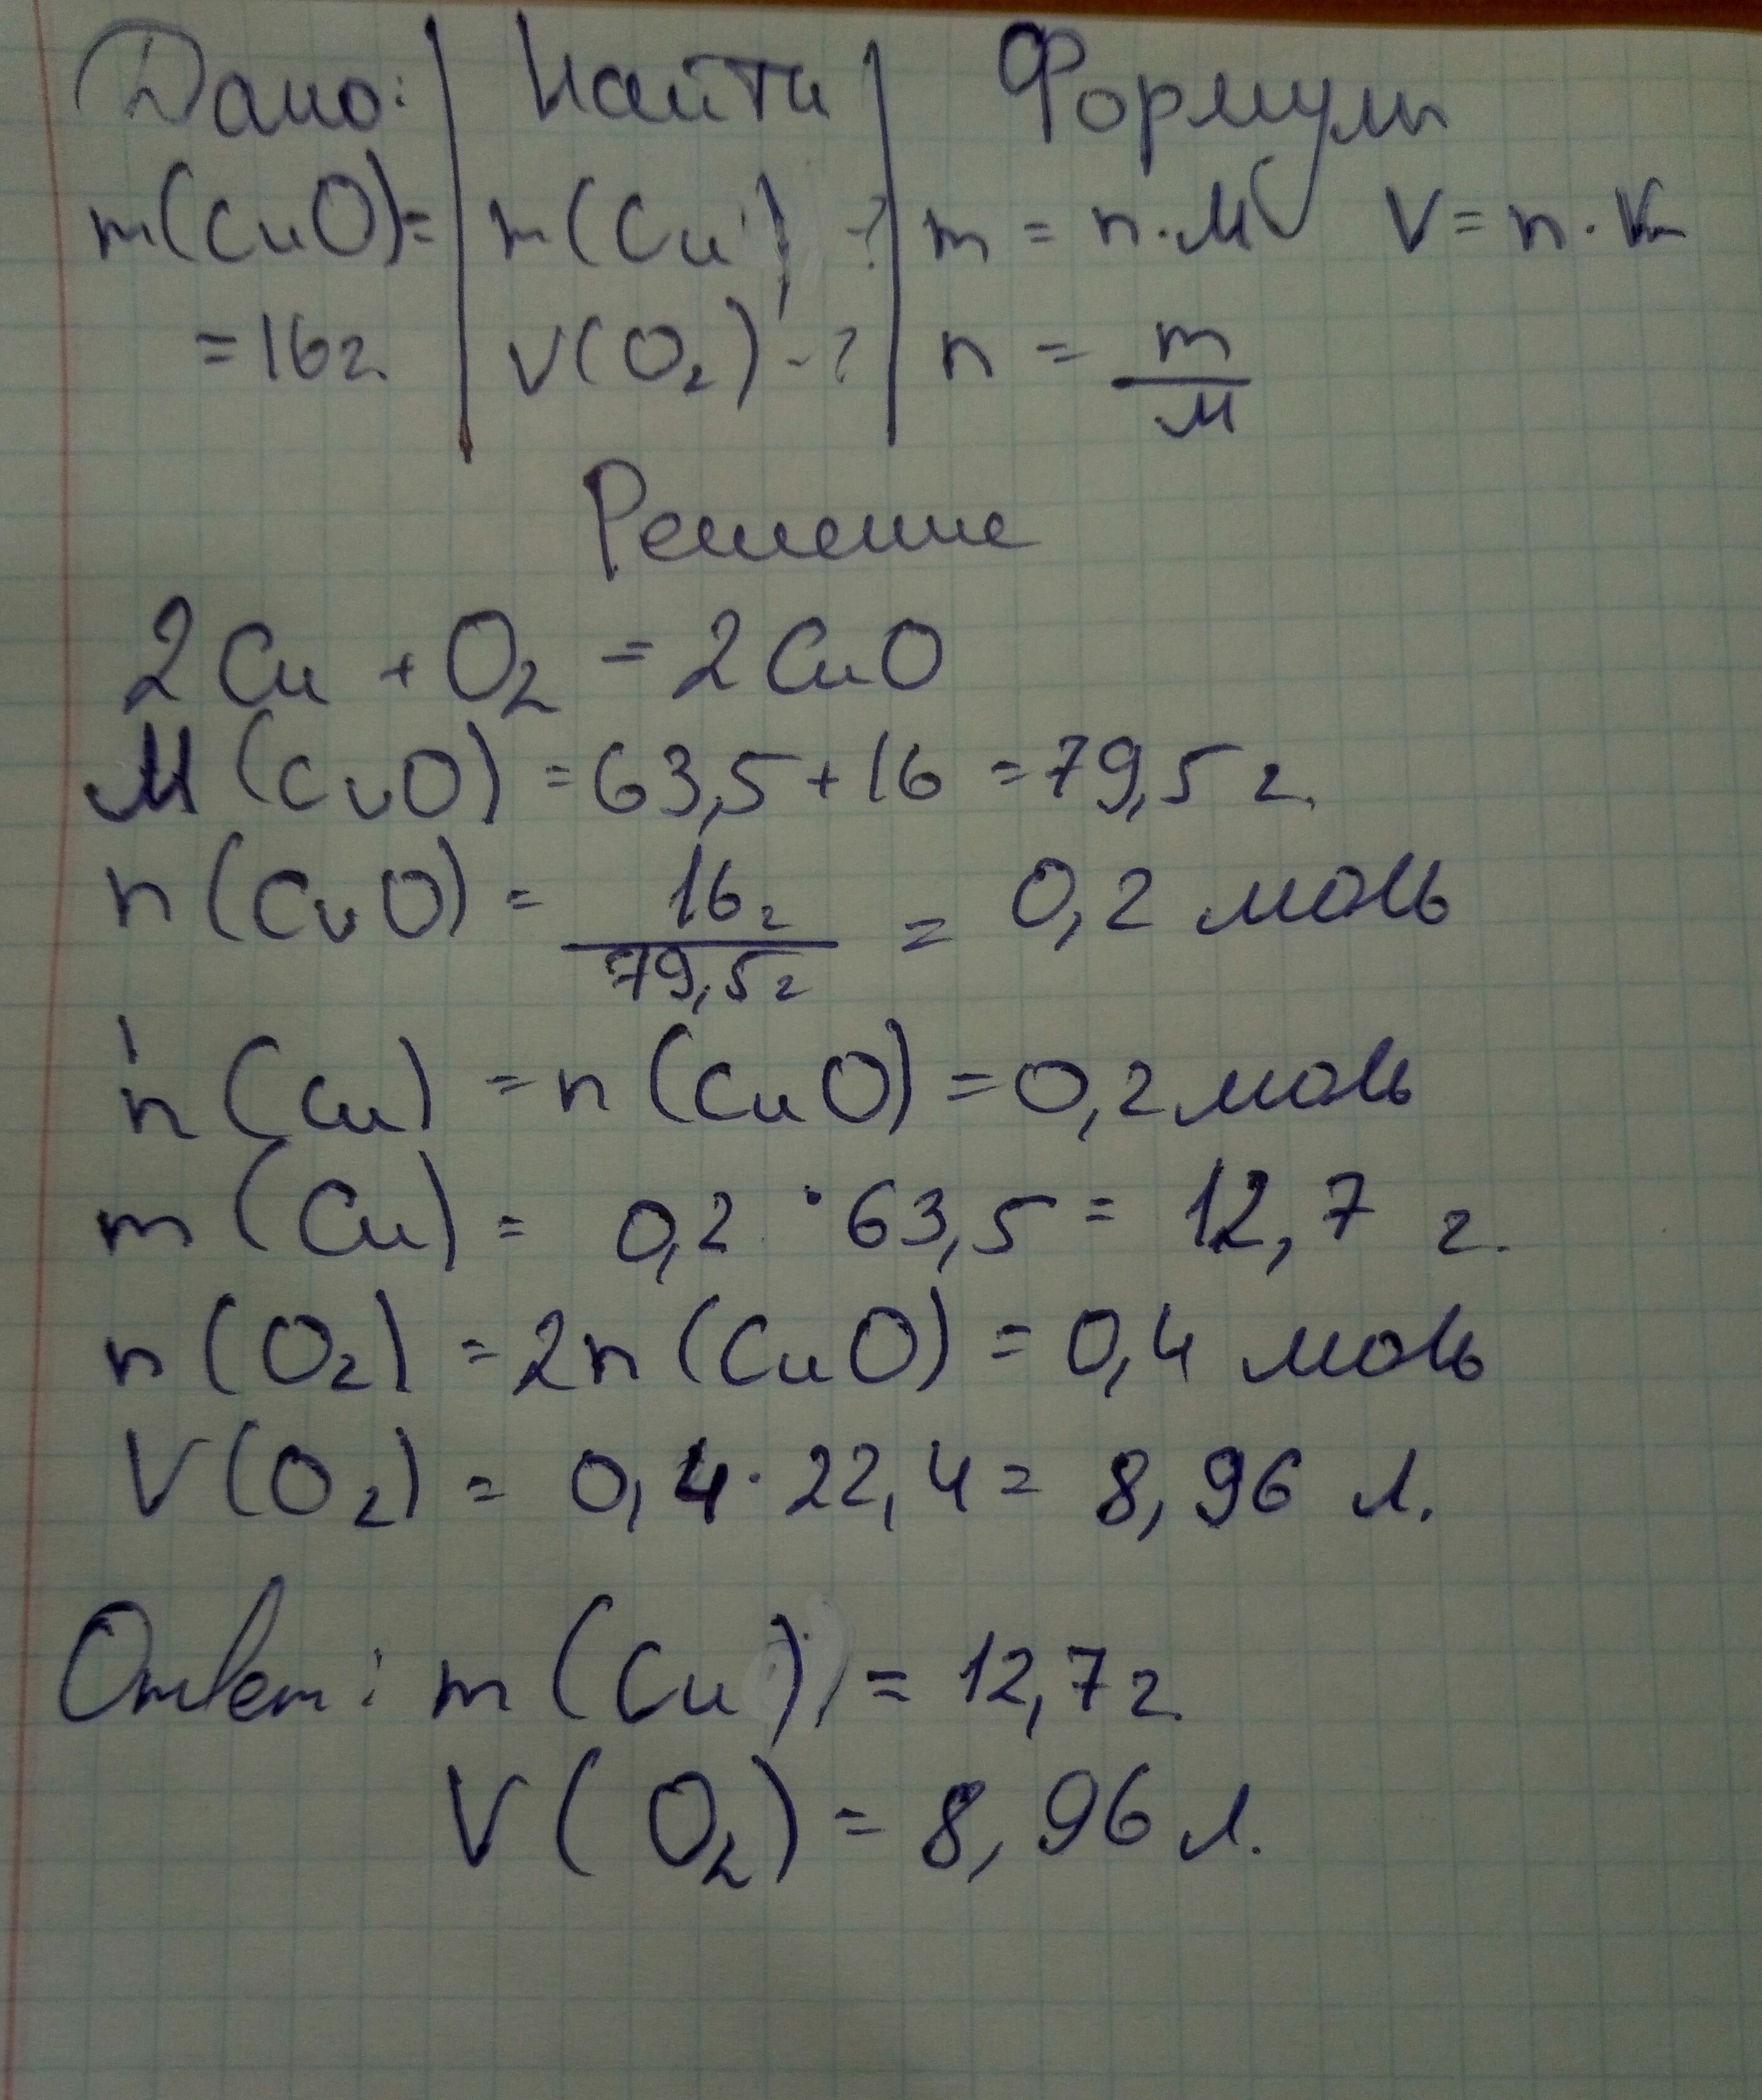 Дано: | Найти | Формулы
m(CuO)= | m(Cu) -? | m = n·M V = n·Vm
=16г. | V(O₂) -? | n = m/M
Решение
2Cu + O₂ = 2CuO
M(CuO) = 63,5+16 = 79,5 г.
n(CuO) = 16г/79,5г = 0,2 моль
n(Cu) = n(CuO) = 0,2 моль
m(Cu) = 0,2 · 63,5 = 12,7 г.
n(O₂) = 2n(CuO) = 0,4 моль
V(O₂) = 0,4 · 22,4 = 8,96 л.
Ответ: m(Cu) = 12,7г.
V(O₂) = 8,96 л.